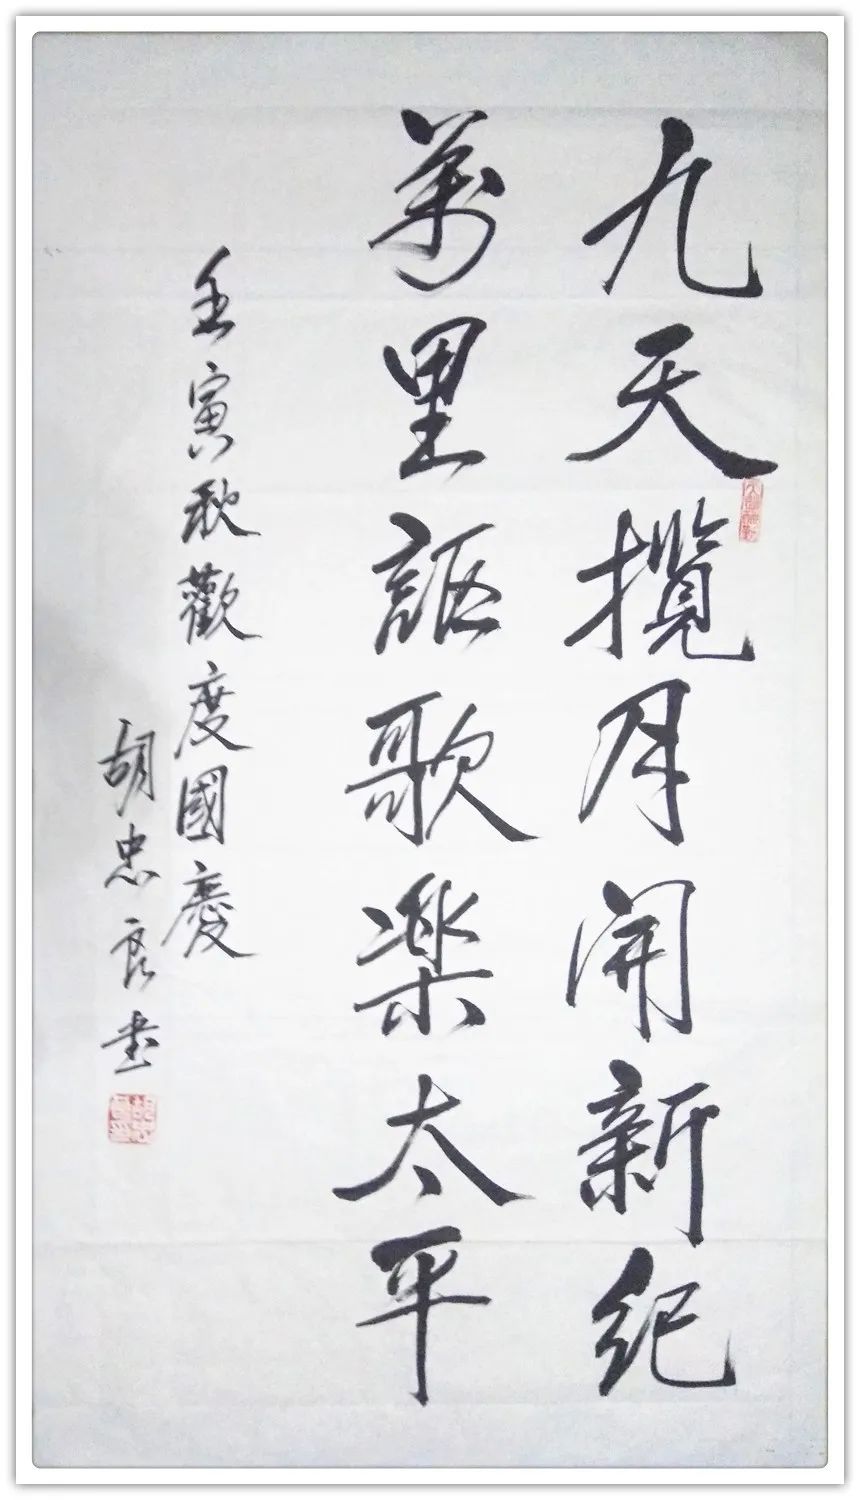 九天揽月开新纪
萬里謳歌樂太平
壬寅秋歡度國慶
胡忠良書